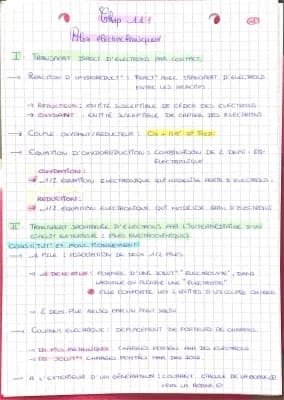 Chap 11
Piles électrochimiques
I - TRANSFERT DIRECT D'ELECTRONS PAR CONTACT
→ REACTION D'OXYDOREDUCT° : REACT° AVEC TRANSFERT D'ELECTRONS
ENTRE LES REACTIFS.
→ REDUCTEUR : ENTITE SUSCEPTIBLE DE CEDER DES ELECTRONS
→ OXYDANT : ENTITE SUSCEPTIBLE DE CAPTER DES ELECTRONS
→ COUPLE OXYDANT/REDUCTEUR :
→ EQUATION D'OXYDOREDUCTION : COMBINAISON DE 2 DEMI-EQ-
ELECTRONIQUE
OXYDATION :
→ 1/2 EQUATION ELECTRONIQUE QUI MODELISE PERTE D'ELECTRONS.
REDUCTION :
→ 1/2 EQUATION ELECTRONIQUE QUI MODELISE GAIN D'ELECTRONS
II TRANSFERT SPONTANEE D'ELECTRONS PAR L'INTERMEDIAIRE D'UN
CIRCUIT EXTERIEUR : PILES ELECTROCHIMIQUES.
CONSTITUT° ET FONCTIONNEMENT
→ 1 PILE : ASSOCIATION DE DEUX 1/2 PILES
→ 1 DEMI-PILE : FORMEE D'UNE SOLUT° "ELECTROLYTE", DANS
LAQUELLE ON PLONGE UNE "ELECTRODE"
ELLE COMPORTE LES 2 ENTITES D'UN COUPLE OX/RED.
→ 2 DEMI-PILE RELIES PAR UN PONT SALIN
→ COURANT ELECTRIQUE : DEPLACEMENT DE PORTEURS DE CHARGES.
METALLIQUES : CHARGES PORTEES PAR DES ELECTRONS
SOLUT° : CHARGES PORTEES PAR DES IONS.
→ A L'EXTERIEUR D'UN GENERATEUR : COURANT CIRCULE DE LA BORNE ⊕
VERS LA BORNE ⊖